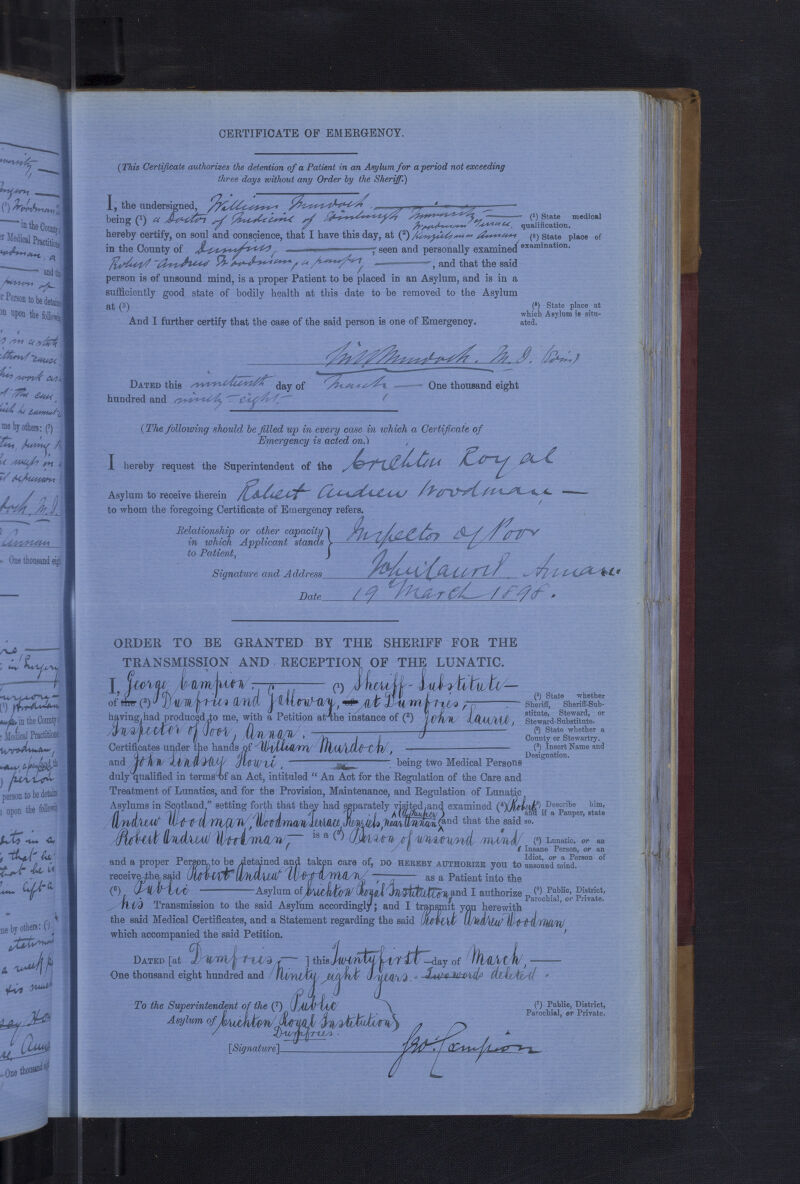 CERTIFICATE OF EMERGENCY.
(This Certificate authorizes the detention of a Patient in an Asylum for a period not exceeding
three days without any Order by the Sheriff.)
I, the undersigned, William Murdoch
being (1) a Doctor of Medicine of Edinburgh University
Woodman Terrace,
hereby certify, on soul and conscience, that I have this day, at (2) Kenziels near Annan
in the County of Dumfries, ; seen and personally examined
Robert Andrew Woodman, a pauper, , and that the said
person is of unsound mind, is a proper Patient to be placed in an Asylum, and is in a
sufficiently good state of bodily health at this date to be removed to the Asylum
at (3)
And I further certify that the case of the said person is one of Emergency.
(1) State medical
qualification.
(2) State place of
examination.
(3) State place at
which Asylum is situ-
ated.
Will Murdoch. M.D. (Edin)
DATED this nineteenth day of March One thousand eight
hundred and ninety-eight
(The following should be filled up in every case in which a Certificate of
Emergency is acted on.)
I hereby request the Superintendent of the Crichton Royal
Asylum to receive therein Robert Andrew Woodman
to whom the foregoing Certificate of Emergency refers.
Relationship or other capacity
in which Applicant stands
to Patient,
Inspector of Poor
Signature and Address John Laurie Annan
Date 19 March 1898.
ORDER TO BE GRANTED BY THE SHERIFF FOR THE
TRANSMISSION AND RECEPTION OF THE LUNATIC.
I, George Campion (1) Sheriff-Substitute
of the (2) Dumfries and Galloway, at Dumfries,
having had produced to me, with a Petition at the instance of (3) John Laurie,
Inspector of Poor, Annan.
Certificates under the hands of William Murdoch,
and John Lindsay Howie. being two Medical Persons
duly qualified in terms of an Act, intituled "An Act for the Regulation of the Care and
Treatment of Lunatics, and for the Provision, Maintenance, and Regulation of Lunatic
Asylums in Scotland," setting forth that they had separately visited and examined (4) Robert
(a Pauper)
Andrew Woodman, Woodman Terrace, Kenziels, near Annan and that the said
Robert Andrew Woodman, is a (5) Person of unsound mind
and a proper Person to be detained and taken care of, DO HEREBY AUTHORIZE you to
receive the said Robert Andrew Woodman, as a Patient into the
(6) Public Asylum of Crichton Royal Institution and I authorize
his Transmission to the said Asylum accordingly; and I transmit you herewith
the said Medical Certificates, and a Statement regarding the said Robert Andrew Woodman,
which accompanied the said Petition.
(1) State whether
Sheriff, Sheriff-Sub-
stitute, Steward, or
Steward-Substitute.
(2) State whether a
County or Stewartry.
(3) Insert Name and
Designation.
(4) Describe him,
and if a Pauper, state
so.
(5) Lunatic, or an
Insane Person, or an
Idiot, or a Person of
unsound mind.
(6) Public, District,
Parochial, or Private.
DATED [at Dumfries, ] this Twenty first day of March,
One thousand eight hundred and Ninety eight years. Two words deleted.
To the Superintendent of the (7) Public
Asylum of Crichton Royal Institution
Dumfries.
(7) Public, District,
Parochial, or Private.
[Signature] Geo. Campion